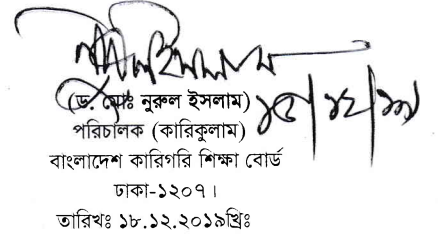 (ড. মোঃ নুরুল ইসলাম)
পরিচালক (কারিকুলাম)
বাংলাদেশ কারিগরি শিক্ষা বোর্ড
ঢাকা-১২০৭।
তারিখঃ ১৮.১২.২০১৯খ্রিঃ